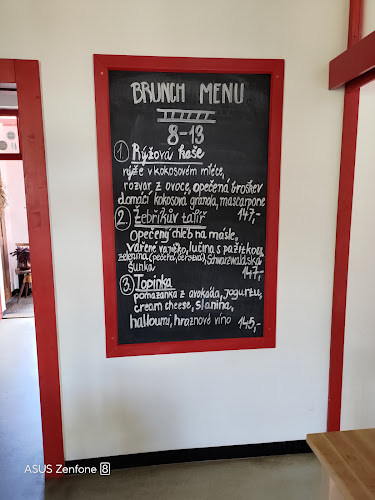 BRUNCH MENU
8-13
1 Rýžová kaše
rýže v kokosovém mléce,
rozvar z ovoce, opečená broskev
domácí kokosová granola, mascarpone
147,-
2. Žebříkův talíř
opečený chléb na másle,
vařené vajíčko, lučina s pažitkou,
zelenina (pečená, čerstvá), Schwarzwaldská
šunka 147,-
3 Topinka
pomazánka z avokáda, jogurtu,
cream cheese, slanina,
halloumi, hroznové víno 145,-
ASUS Zenfone 8